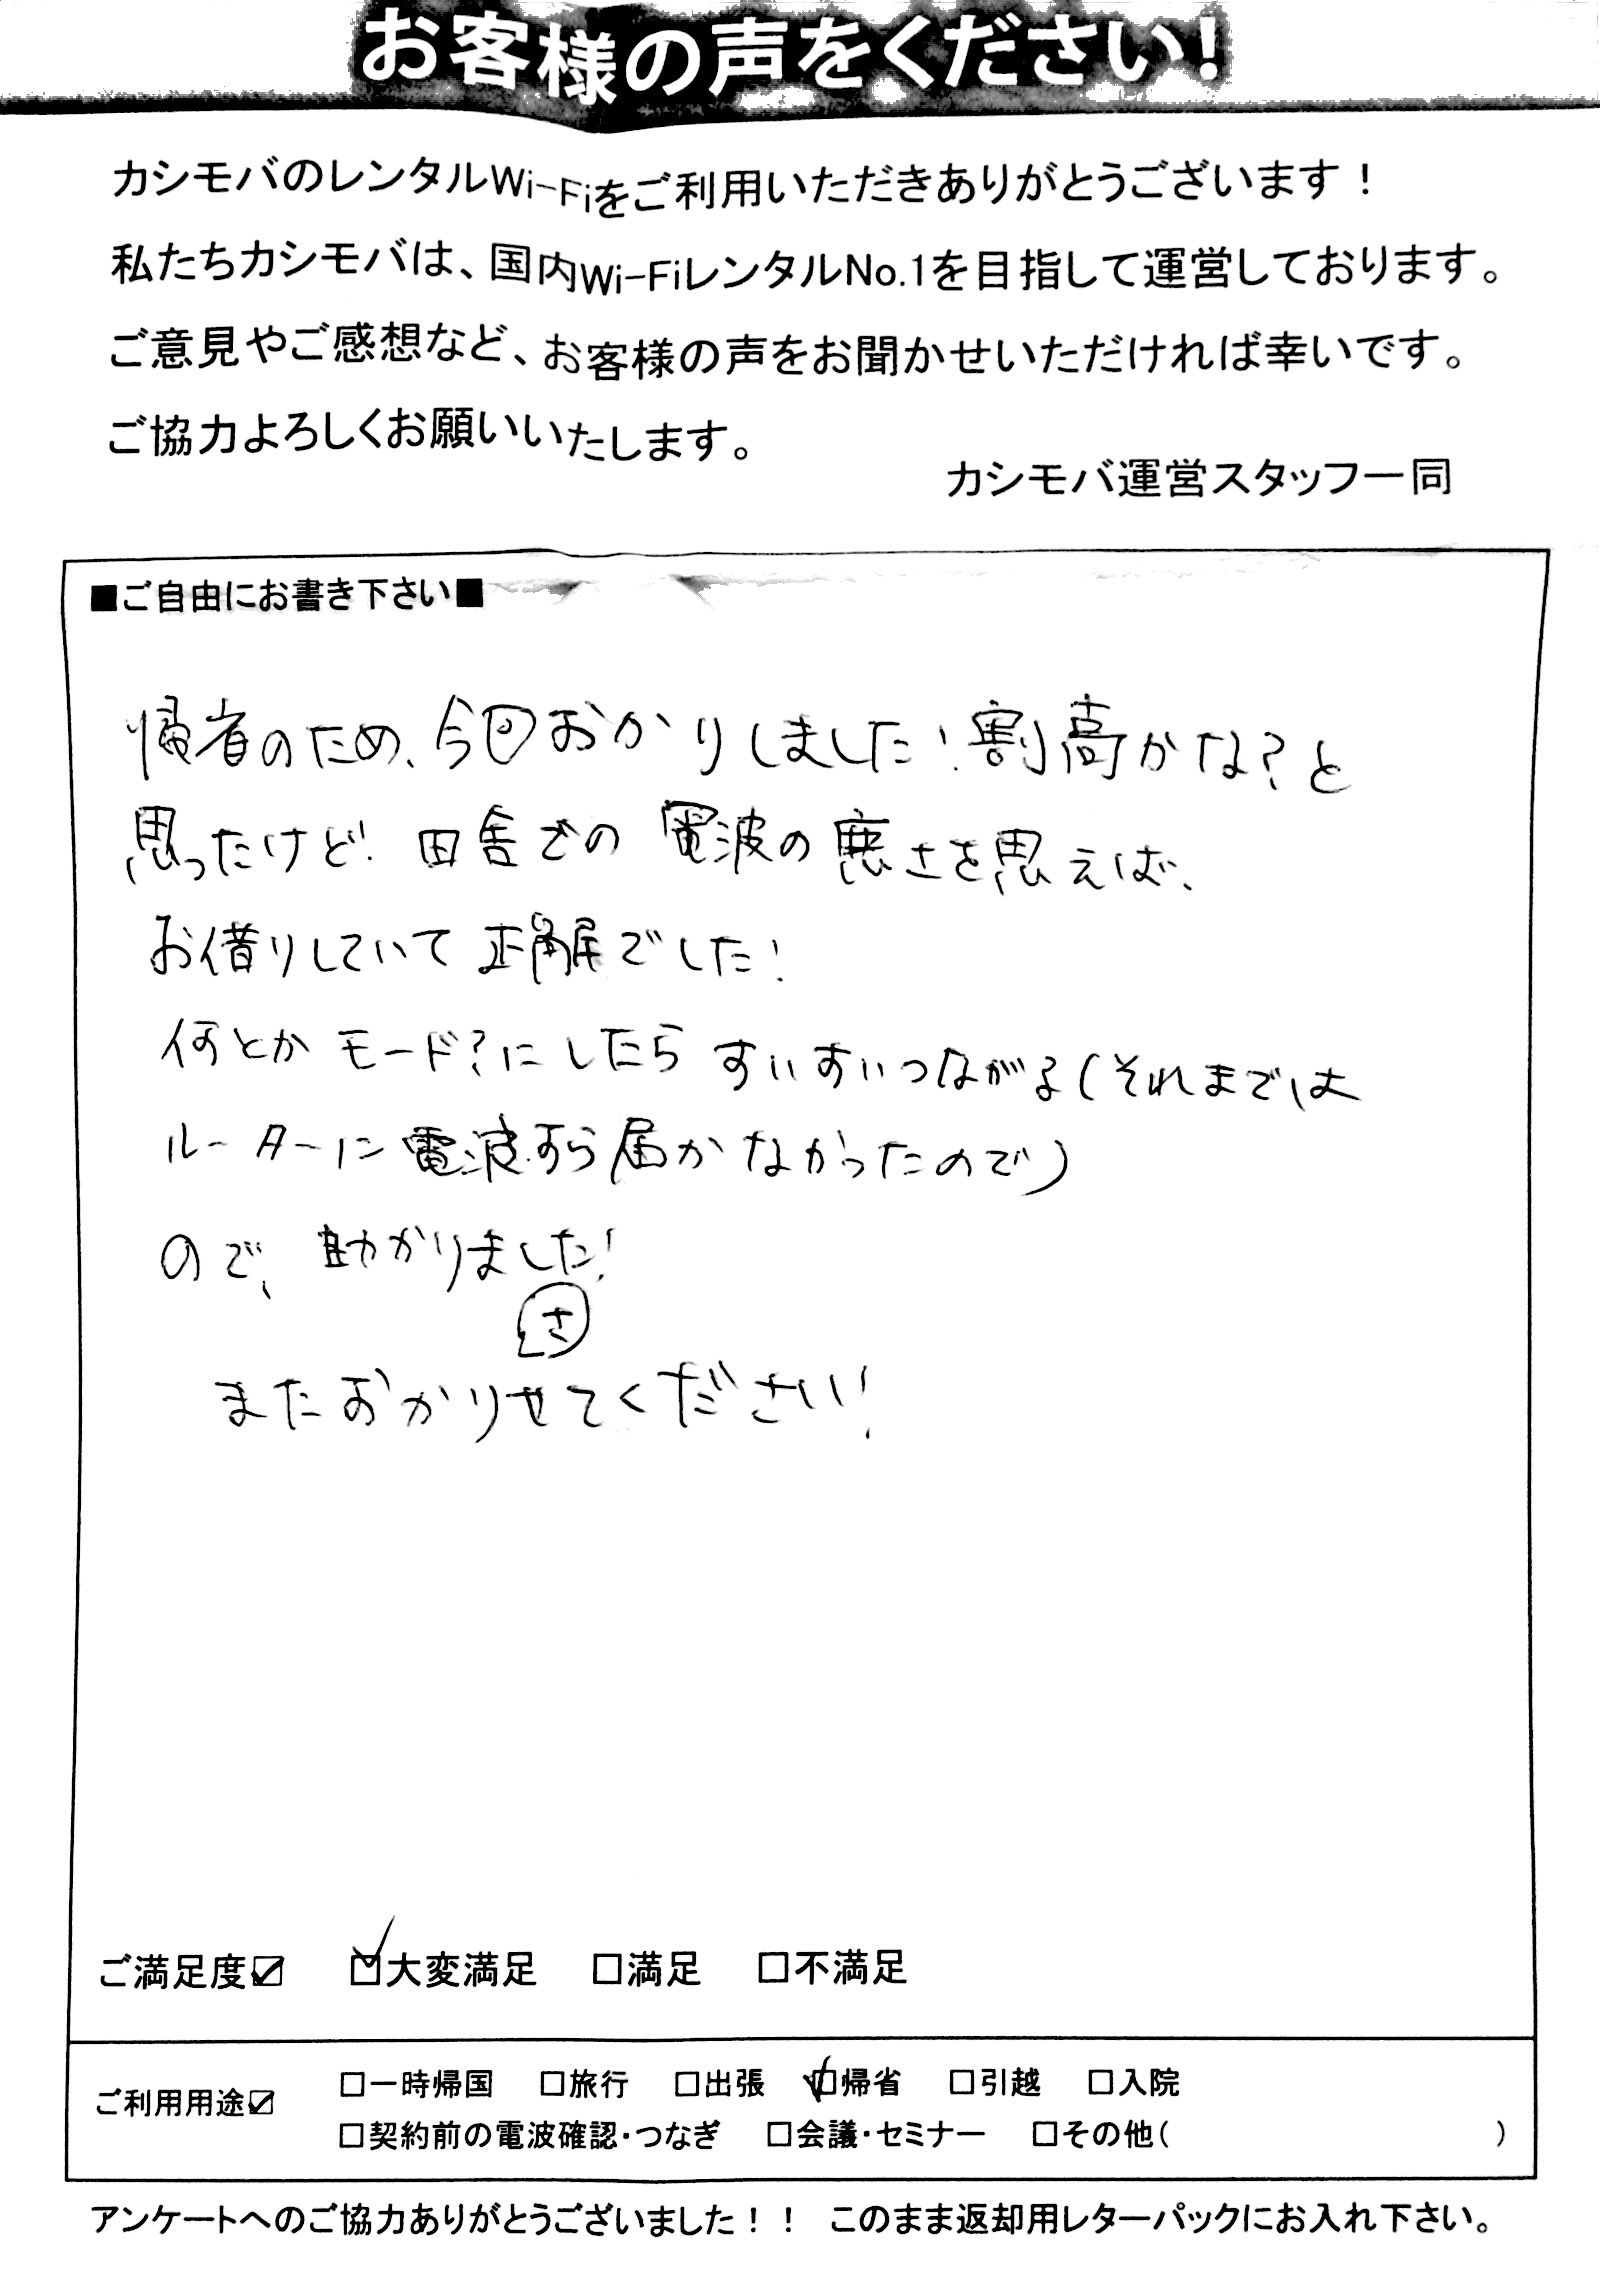 お客様の声をください!
カシモバのレンタルWi-Fiをご利用いただきありがとうございます！
私たちカシモバは、国内Wi-FiレンタルNo.1を目指して運営しております。
ご意見やご感想など、お客様の声をお聞かせいただければ幸いです。
ご協力よろしくお願いいたします。
カシモバ運営スタッフ一同
■ご自由にお書き下さい■
帰省のため、今回おかりしました!割高かな?と
思ったけど、田舎での電波の悪さを思えば、
お借りしていて正解でした!
何とかモード?にしたらすいすいつながる(それまでは
ルーターに電波すら届かなかったので)
ので、助かりました!
さ
またおかりせてください!
ご満足度☑ ☑大変満足 □満足 □不満足
ご利用用途☑ □一時帰国 □旅行 □出張 ☑帰省 □引越 □入院
□契約前の電波確認・つなぎ □会議・セミナー □その他( )
アンケートへのご協力ありがとうございました！！ このまま返却用レターパックにお入れ下さい。